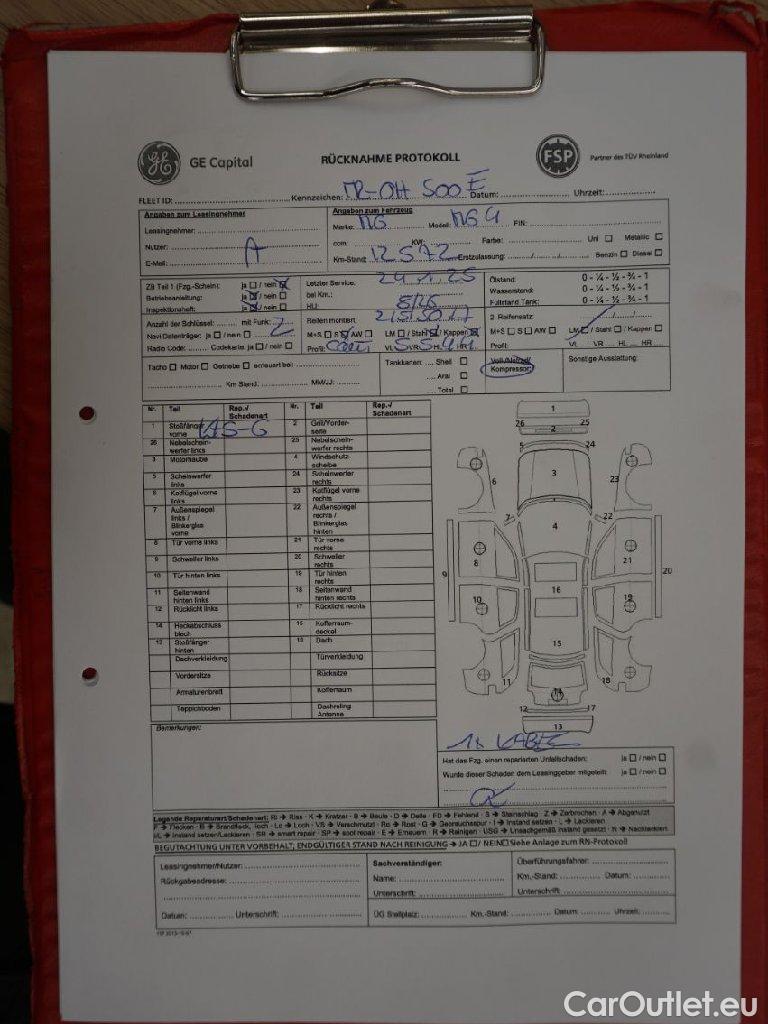 GE
GE Capital
RÜCKNAHME PROTOKOLL
FSP
Partner des TÜV Rheinland
FLEET ID: Kennzeichen: Datum: Uhrzeit:
Angaben zum Leasingnehmer
Leasingnehmer:
Nutzer:
E-Mail:
Angaben zum Fahrzeug
Marke: MG Modell: MG 4 FIN:
ccm: KW: Farbe: Uni Metallic
Km-Stand: 12572 Erstzulassung: Benzin Diesel
ZB Teil 1 (Fzg.-Schein): ja / nein
Betriebsanleitung: ja / nein
Inspektionsheft: ja / nein
Letzter Service:
bei Km.:
HU:
Ölstand: 0 - ¼ - ½ - ¾ - 1
Wasserstand: 0 - ¼ - ½ - ¾ - 1
Füllstand Tank: 0 - ¼ - ½ - ¾ - 1
Anzahl der Schlüssel: mit Funk: 2
Navi Datenträger: ja / nein
Radio Code: Codekarte ja / nein
Reifen montiert:
M+S S AW LM / Stahl / Kappen
Profil: VL VR HL HR
2. Reifensatz
M+S S AW LM / Stahl / Kappen
Profil: VL VR HL HR
Tacho Motor Getriebe erneuert bei
Km Stand: MM/JJ:
Tankkarten: Shell
Aral
Total
Kompressor:
Sonstige Ausstattung:
Nr. Teil Rep./ Schadenart Nr. Teil Rep./ Schadenart
1 Stoßfänger vorne 2 Grill/Vorderseite
26 Nebelscheinwerfer links 25 Nebelscheinwerfer rechts
3 Motorhaube 4 Windschutzscheibe
5 Scheinwerfer links 24 Scheinwerfer rechts
6 Kotflügel vorne links 23 Kotflügel vorne rechts
7 Außenspiegel links / Blinkerglas vorne 22 Außenspiegel rechts / Blinkerglas hinten
8 Tür vorne links 21 Tür vorne rechts
9 Schweller links 20 Schweller rechts
10 Tür hinten links 19 Tür hinten rechts
11 Seitenwand hinten links 18 Seitenwand hinten rechts
12 Rücklicht links 17 Rücklicht rechts
14 Heckabschlussblech 15 Kofferraumdeckel
13 Stoßfänger hinten 16 Dach
Dachverkleidung Türverkleidung
Vordersitze Rücksitze
Armaturenbrett Kofferraum
Teppichboden Dachreling Antenne
1
26 25
2
5 24
3
6 23
7 22
4
8 21
9 20
10 19
16
15
11 18
14
12 17
13
Bemerkungen:
Hat das Fzg. einen reparierten Unfallschaden: ja / nein
Wurde dieser Schaden dem Leasinggeber mitgeteilt: ja / nein
Legende Reparaturart/Schadenart: RI → Riss · K → Kratzer · B → Beule · D → Delle · FD → Fehlend · S → Steinschlag · Z → Zerbrochen · A → Abgenutzt
BEGUTACHTUNG UNTER VORBEHALT; ENDGÜLTIGER STAND NACH REINIGUNG → JA / NEIN Siehe Anlage zum RN-Protokoll
Leasingnehmer/Nutzer:
Rückgabeadresse:
Datum: Unterschrift:
Sachverständiger:
Name:
Unterschrift:
Überführungsfahrer:
Km.-Stand: Datum:
Unterschrift:
ÜG Stellplatz: Km.-Stand: Datum: Uhrzeit:
CarOutlet.eu